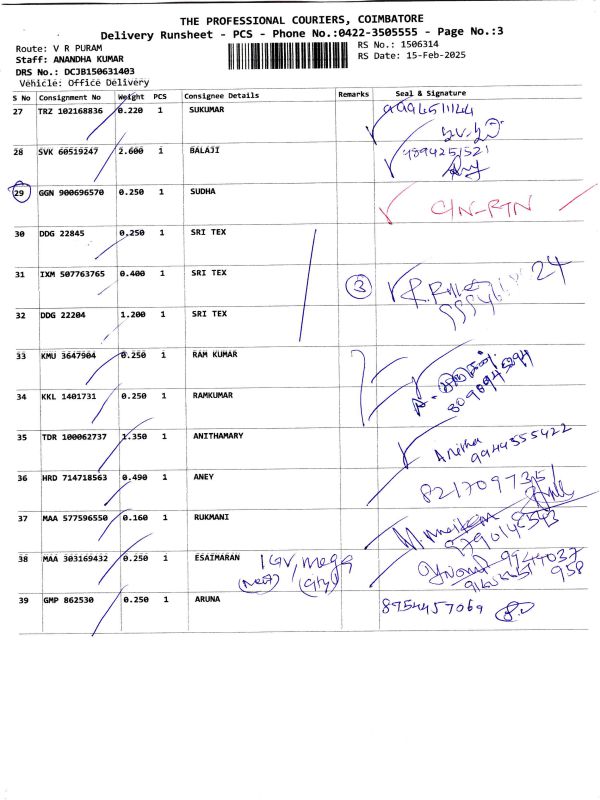 THE PROFESSIONAL COURIERS, COIMBATORE
Delivery Runsheet - PCS - Phone No.:0422-3505555 - Page No.:3
Route: V R PURAM
Staff: ANANDHA KUMAR
DRS No.: DCJB150631403
Vehicle: Office Delivery
RS No.: 1506314
RS Date: 15-Feb-2025
S No Consignment No Weight PCS Consignee Details Remarks Seal & Signature
27 TRZ 102168836 0.220 1 SUKUMAR
28 SVK 60519247 2.600 1 BALAJI 4894251521
29 GGN 900696570 0.250 1 SUDHA C/N-RTN
30 DDG 22845 0.250 1 SRI TEX
31 IXM 507763765 0.400 1 SRI TEX 3
32 DDG 22204 1.200 1 SRI TEX
33 KMU 3647904 0.250 1 RAM KUMAR
34 KKL 1401731 0.250 1 RAMKUMAR
35 TDR 100062737 1.350 1 ANITHAMARY Anitha
9944355422
36 HRD 714718563 0.490 1 ANEY
37 MAA 577596550 0.160 1 RUKMANI
38 MAA 303169432 0.250 1 ESAIMARAN
39 GMP 862530 0.250 1 ARUNA 8754457069